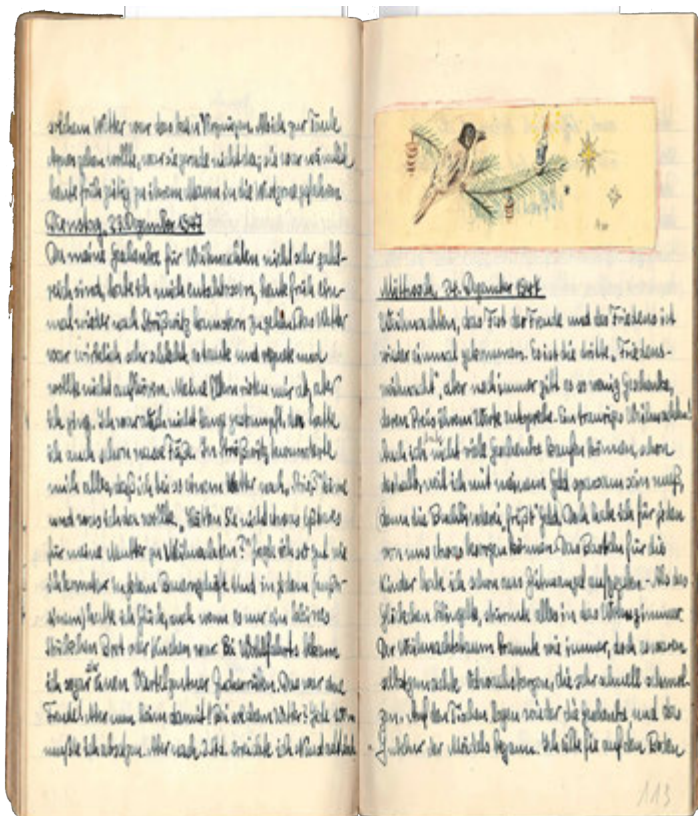 solchem Wetter war das kein Vergnügen. Als ich zur Tante
Agnes gehen wollte, war sie gerade nicht da; sie war nämlich
heute früh zeitig zu ihrem Mann in die gefahren.
Dienstag, 23. Dezember 1947
Da meine Geschenke für Weihnachten nicht sehr zahl-
reich sind, habe ich mich entschlossen, heute früh ein-
mal wieder nach hamstern zu gehen. Das Wetter
war wirklich sehr schlecht, es taute und regnete und
wollte nicht aufhören. Meine Eltern rieten mir ab, aber
ich ging. Ich war noch nicht lange gestampft, da hatte
ich auch schon nasse Füße. In
mich alles, daß ich bei so einem Wetter nach käme
und was ich da wollte. „Hätten Sie nicht etwas Eßbares
für meine Mutter zu Weihnachten?" sagte ich so gut wie
ich konnte. In jedem Bauerngehöft und in jedem
hatte ich Glück, auch wenn es nur ein kleines
Stückchen Brot oder Kuchen war. Bei bekam
ich sogar einen Viertelzentner Zuckerrüben. Das war eine
Freude! Aber nun heim damit! Bei solchem Wetter! Jede
mußte ich absetzen. Aber nach 2 Std. erreichte ich
Mittwoch, 24. Dezember 1947
Weihnachten, das Fest der Freude und des Friedens ist
wieder einmal gekommen. Es ist die dritte „Friedens-
weihnacht", aber noch immer gibt es so wenig Geschenke,
deren Preis ihrem Werte entspräche. Ein trauriges Weihnachten!
Auch ich habe nicht viele Geschenke kaufen können, schon
deshalb, weil ich mit meinem Geld sparsam sein muß,
denn die Buchbinderei „frißt" Geld. Doch habe ich für jeden
von uns etwas besorgen können. Das Basteln für die
Kinder habe ich schon aus Zeitmangel aufgegeben. – Als das
Glöckchen klingelte, stürmte alles in das Weihnachtszimmer.
Der Weihnachtsbaum brannte wie immer, doch es waren
selbstgemachte die sehr schnell schmol-
zen. Auf den Tischen lagen wieder die Geschenke und der
Jubel der Mädels begann. Ich eilte auf den Boden
113